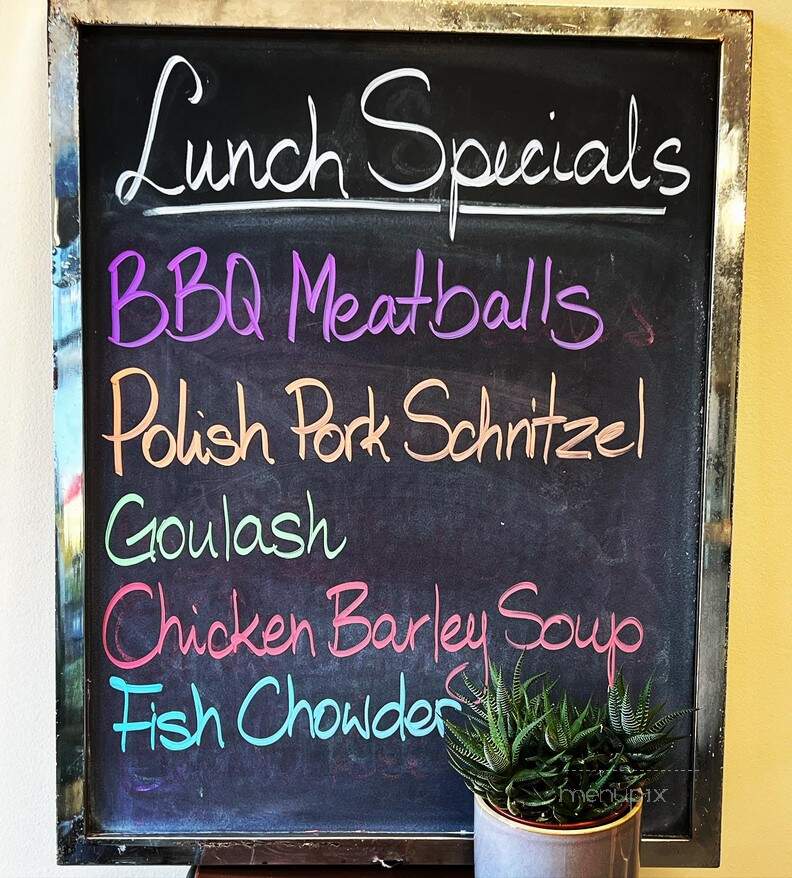 Lunch Specials
BBQ Meatballs
Polish Pork Schnitzel
Goulash
Chicken Barley Soup
Fish Chowder
menupix